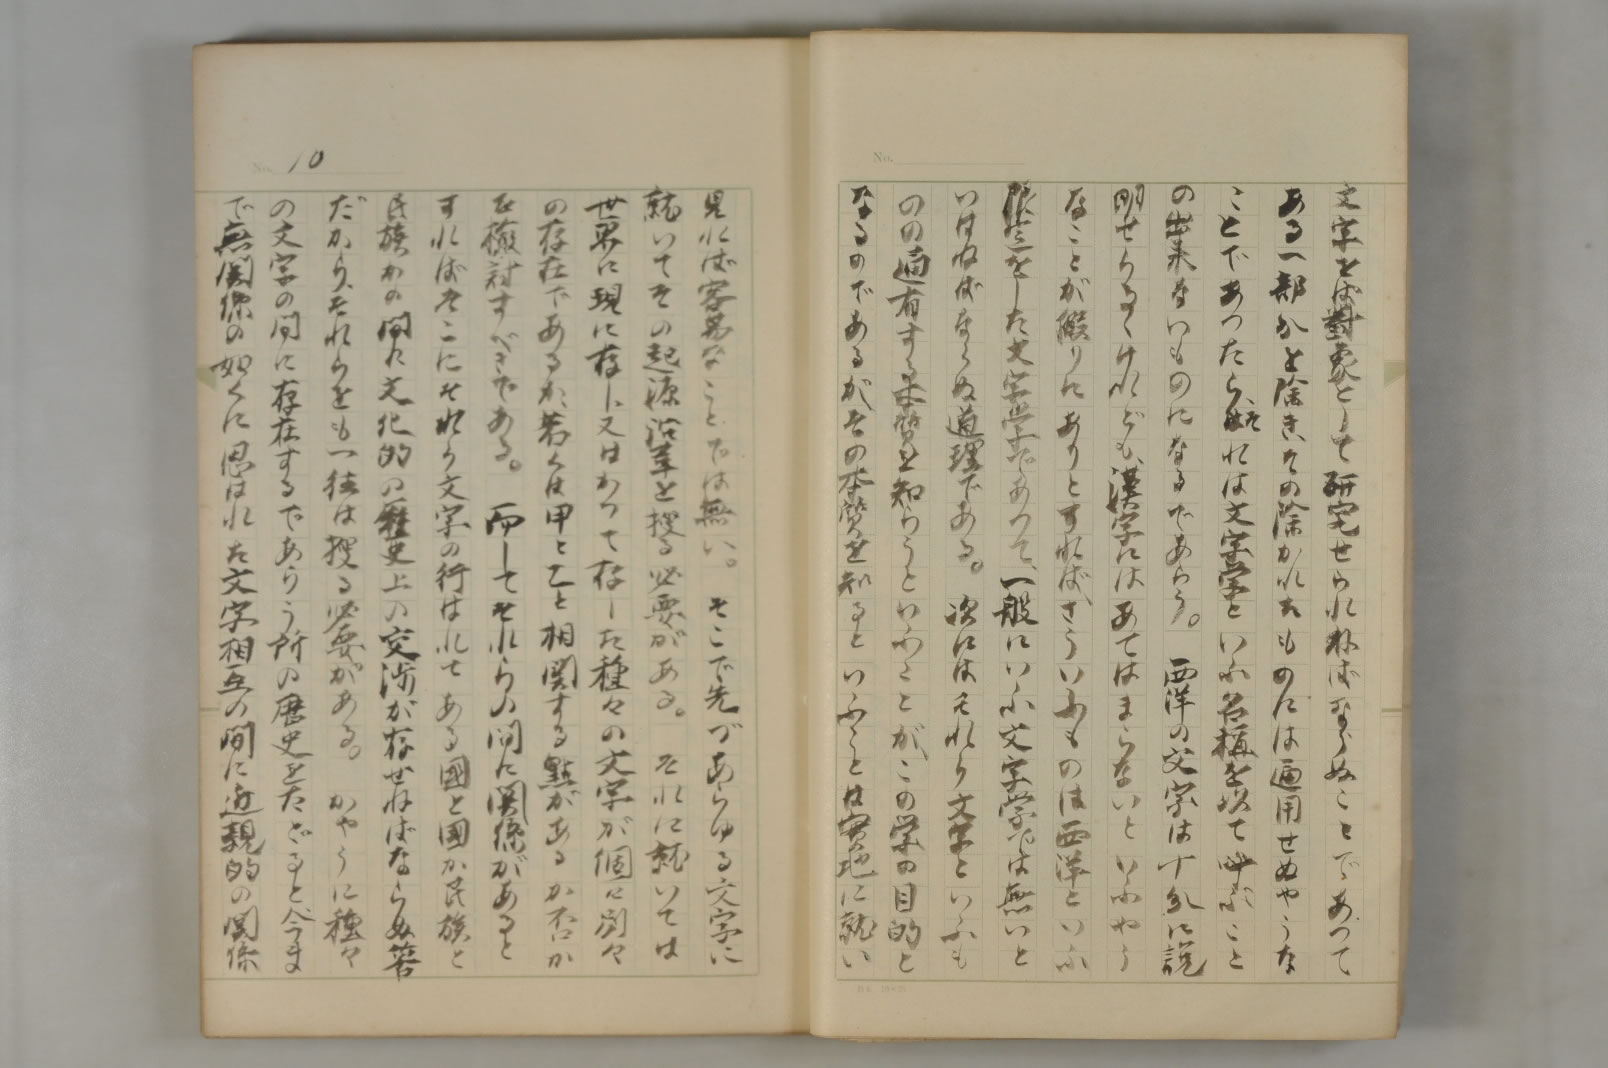 No.
文字をば對象として研究せられねばならぬことであつて
ある一部分を除き、その除かれたものには適用せぬやうな
ことであつたら、それは文字學といふ名稱を以て呼ぶこと
の出來ないものになるであらう。　西洋の文字は十分に説
明せらるゝけれども、漢字にはあてはまらないといふやう
なことが假りにありとすれば、さういふものは西洋といふ
限定をした文字學であつて、一般にいふ文字學では無いと
いはねばならぬ道理である。　次にはそれら文字といふも
のの通有する本質を知らうといふことが、この學の目的と
なるのであるが、その本質を知るといふことは實地に就い
No. 10
見れば容易なことでは無い。　そこで先づあらゆる文字に
就いてその起源沿革を捜る必要がある。　それに就いては
世界に現に存し又はかつて存した種々の文字が個々別々
の存在であるか、若くは甲と乙と相關する點があるか否か
を檢討すべきである。　而してそれらの間に關係があると
すればそこにそれら文字の行はれてある國と國か民族と
民族かの間に文化的の歴史上の交渉が存せねばならぬ筈
だから、それらをも一往は捜る必要がある。　かやうに種々
の文字の間に存在するであらう所の歴史をたどると、今ま
で無關係の如くに思はれた文字相互の間に近親的の關係